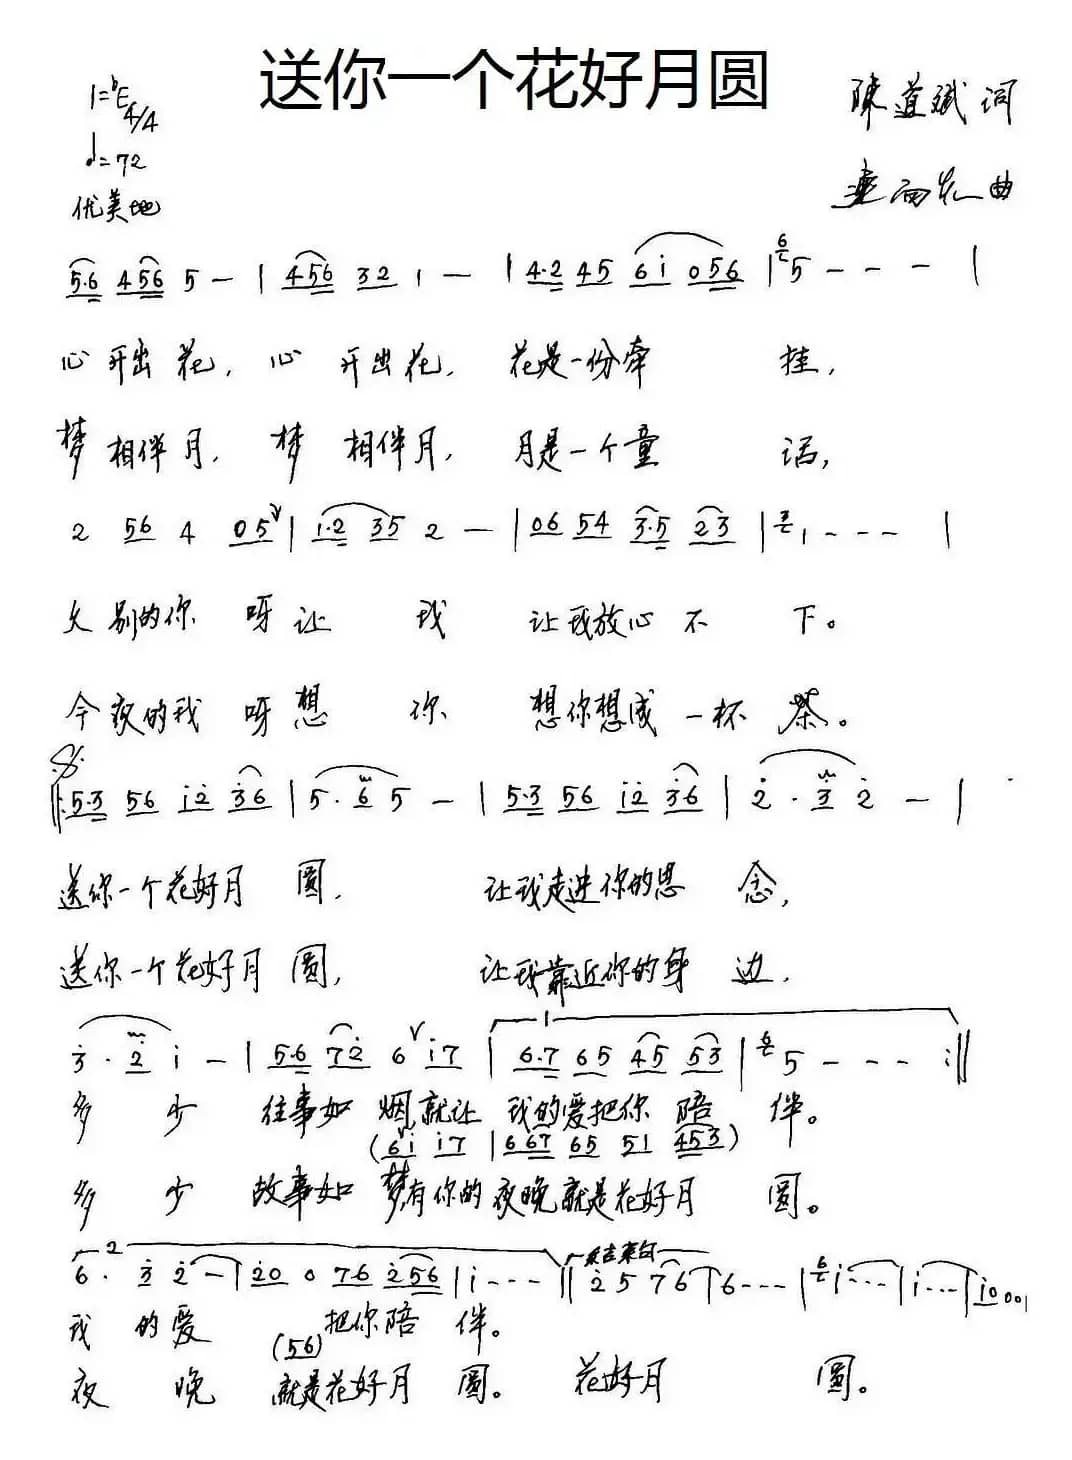 送你一个花好月圆
1=bE 4/4
陈道斌 词
♩=72
优美地
曲
5·6 456 5 — | 456 32 1 — | 4·2 45 6i 056 | 6 5 - - - |
心开出花，心 开出花，花是一份牵 挂，
梦相伴月，梦 相伴月，月是一个童 话，
2 56 4 05 ∨ | 1·2 35 2 — | 06 54 3·5 23 | 2 1 - - - |
久别的你 呀让 我 让我放心不 下。
今夜的我 呀想 你 想你想成一杯 茶。
𝄋
‖: 5·3 56 i2 36 | 5· 6 5 — | 5·3 56 i2 36 | 2· 3 2 — |
送你一个花好月 圆， 让我走进你的思 念，
送你一个花好月 圆， 让我靠近你的身 边，
3· 2 i — | 5·6 72 6 ∨ i7 | 1 6·7 65 45 53 | 6 5 - - - :‖
多 少 往事如 烟就让 我的爱把你 陪 伴。
(6 ∨ i i7 | 667 65 51 453)
多 少 故事如 梦有你的夜晚就是花好月 圆。
2 6· 3 2 — | 20 0 76 256 | i - - - ‖ 结束句 2 5 76 | 6 - - - | 6 i - - - | i - - - | i0 0 0 ‖
我 的爱 把你陪 伴。
(56)
夜 晚 就是花好月 圆。 花好月 圆。